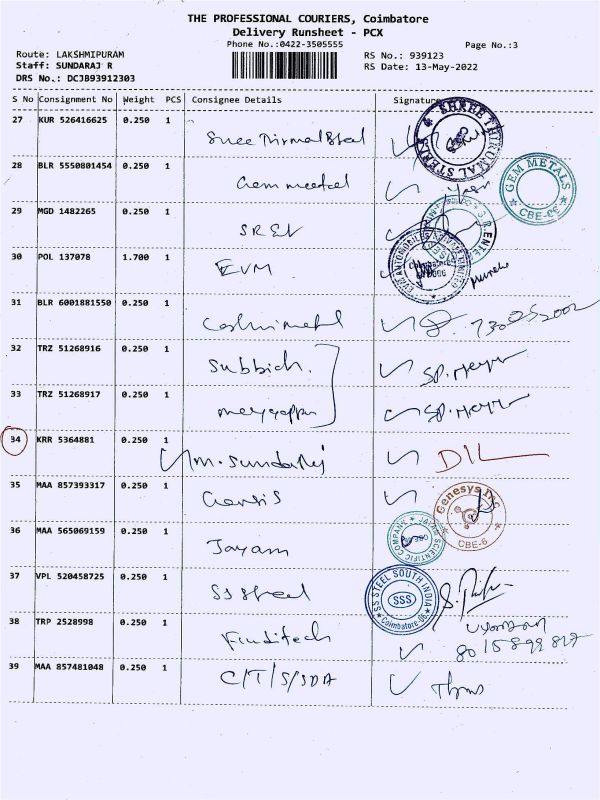 THE PROFESSIONAL COURIERS, Coimbatore
Delivery Runsheet - PCX
Phone No.:0422-3505555
Page No.:3
Route: LAKSHMIPURAM
Staff: SUNDARAJ R
DRS No.: DCJB93912303
RS No.: 939123
RS Date: 13-May-2022
S No Consignment No Weight PCS Consignee Details Signature
27 KUR 526416625 0.250 1
SHREE THIRUMAL STEELS
28 BLR 5550801454 0.250 1
GEM METALS
CBE-06
29 MGD 1482265 0.250 1 S R E N
30 POL 137078 1.700 1 EVM
EVM AUTOMOBILES PRIVATE LIMITED
Coimbatore
31 BLR 6001881550 0.250 1
32 TRZ 51268916 0.250 1 Subbiah. SP. Meyya
33 TRZ 51268917 0.250 1 meyyappa SP. Meyya
34 KRR 5364881 0.250 1 m. Sundaraj DIL
35 MAA 857393317 0.250 1
Genesys Inc
CBE-6
36 MAA 565069159 0.250 1 Jayam
JAYAM SCIENTIFIC COMPANY
37 VPL 520458725 0.250 1 SS Steel
SS STEEL SOUTH INDIA
SSS
Coimbatore 06
38 TRP 2528998 0.250 1 Finditech
39 MAA 857481048 0.250 1 C/T/S/SDA